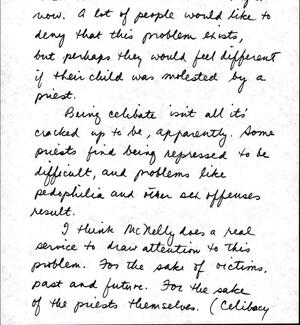 now. A lot of people would like to
deny that this problem exists,
but perhaps they would feel different
if their child was molested by a
priest.
Being celibate isn't all it's
cracked up to be, apparently. Some
priests find being repressed to be
difficult, and problems like
pedophilia and other sex offenses
result.
I think McNelly does a real
service to draw attention to this
problem. For the sake of victims,
past and future. For the sake
of the priests themselves. (Celibacy